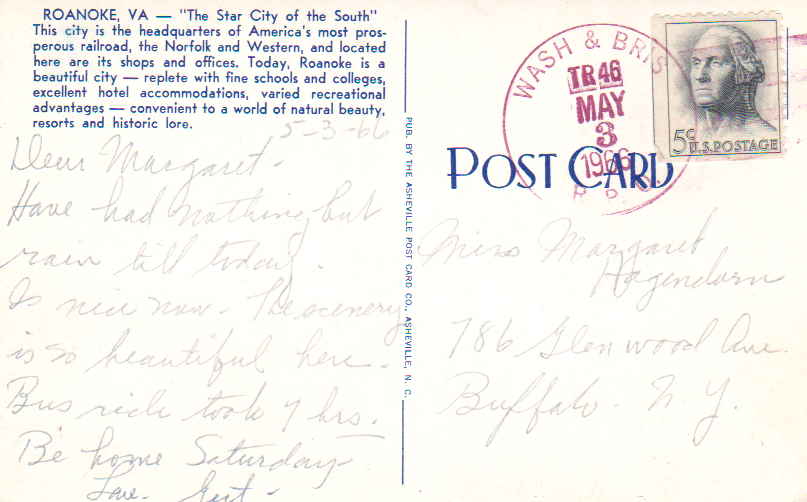 ROANOKE, VA — "The Star City of the South"
This city is the headquarters of America's most pros-
perous railroad, the Norfolk and Western, and located
here are its shops and offices. Today, Roanoke is a
beautiful city — replete with fine schools and colleges,
excellent hotel accommodations, varied recreational
advantages — convenient to a world of natural beauty,
resorts and historic lore.
5-3-66
Dear Margaret-
Have had nothing but
rain till today.
Is nice now. The scenery
is so beautiful here.
Bus ride took 9 hrs.
Be home Saturday
Love- Gert-
PUB. BY THE ASHEVILLE POST CARD CO., ASHEVILLE, N. C.
WASH & BRIS
TR 46
MAY
3
1966
R.P.O.
5c U.S. POSTAGE
POST CARD
Miss Margaret
Hagendorn
786 Glenwood Ave.
Buffalo. N.Y.